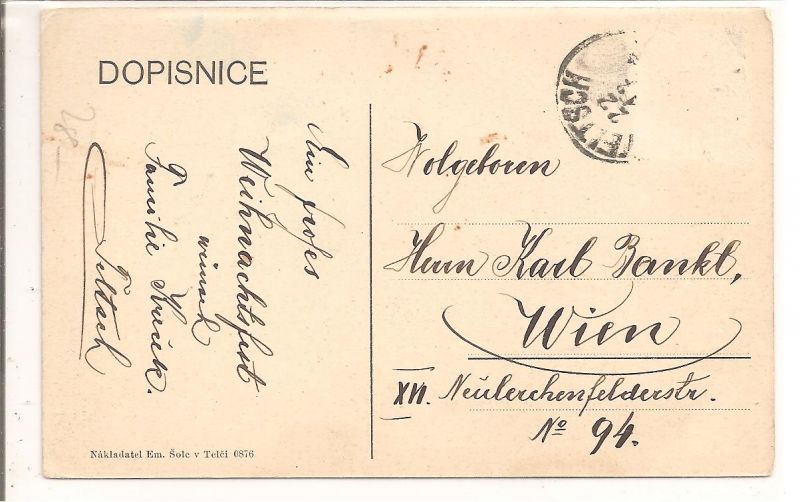 DOPISNICE
28.–
Ein frohes
Weihnachtsfest
wünscht
Familie
Teltsch
Nákladatel Em. Šolc v Telči 0876
TELTSCH
22
Wolgeboren
Herrn Karl Bankl,
Wien
XVI. Neulerchenfelderstr.
No 94.